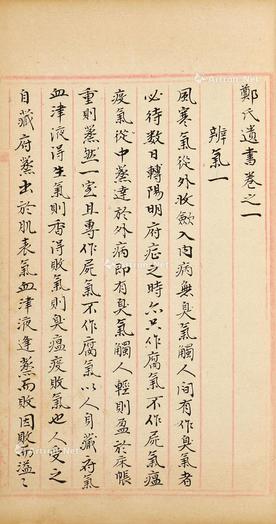 鄭氏遺書卷之一
辨氣一
風寒氣從外收歛入内病無臭氣觸人间有作臭氣者
必待数日轉陽明府症之時亦只作腐氣不作屍氣瘟
疫氣從中蒸達於外病即有臭氣觸人輕則盈於床帳
重則蒸然一室且專作屍氣不作腐氣以人身藏府氣
血津液得生氣則香得敗氣則臭瘟疫敗氣也人受之
自藏府蒸出於肌表氣血津液逢蒸而敗因敗而溢〻